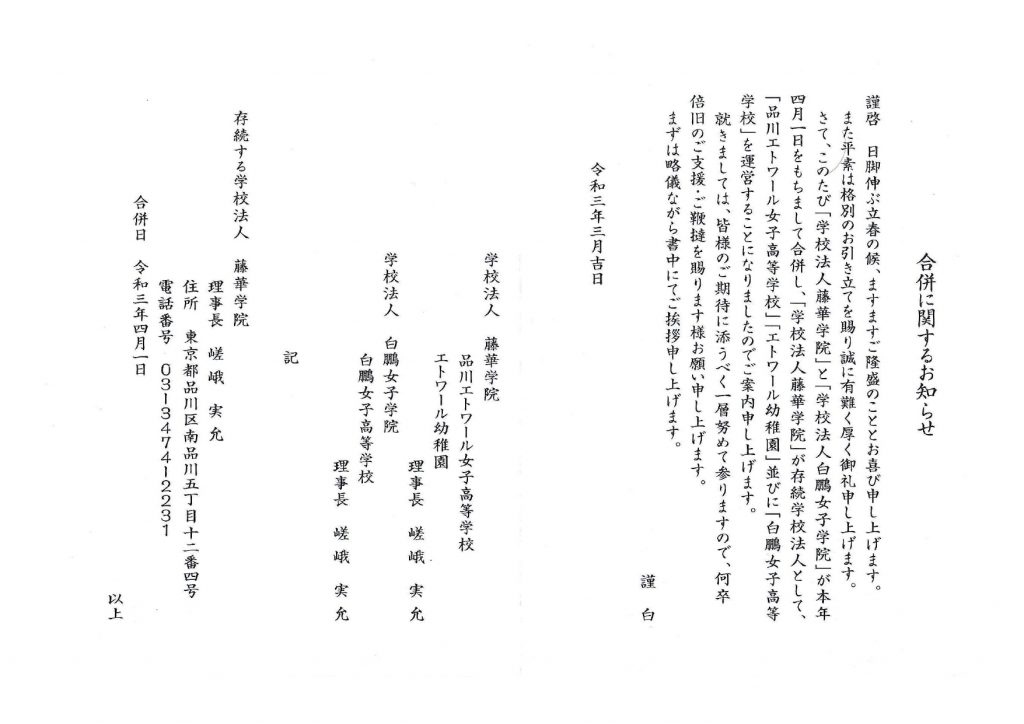 合併に関するお知らせ
謹啓　日脚伸ぶ立春の候、ますますご隆盛のこととお喜び申し上げます。
また平素は格別のお引き立てを賜り誠に有難く厚く御礼申し上げます。
さて、このたび「学校法人藤華学院」と「学校法人白鵬女子学院」が本年
四月一日をもちまして合併し、「学校法人藤華学院」が存続学校法人として、
「品川エトワール女子高等学校」「エトワール幼稚園」並びに「白鵬女子高等
学校」を運営することになりましたのでご案内申し上げます。
就きましては、皆様のご期待に添うべく一層努めて参りますので、何卒
倍旧のご支援・ご鞭撻を賜ります様お願い申し上げます。
まずは略儀ながら書中にてご挨拶申し上げます。
謹　白
令和三年三月吉日
学校法人　藤華学院
品川エトワール女子高等学校
エトワール幼稚園
理事長　嵯峨　実允
学校法人　白鵬女子学院
白鵬女子高等学校
理事長　嵯峨　実允
記
存続する学校法人　藤華学院
理事長　嵯峨　実允
住所　東京都品川区南品川五丁目十二番四号
電話番号　03-3474-2231
合併日　令和三年四月一日
以上